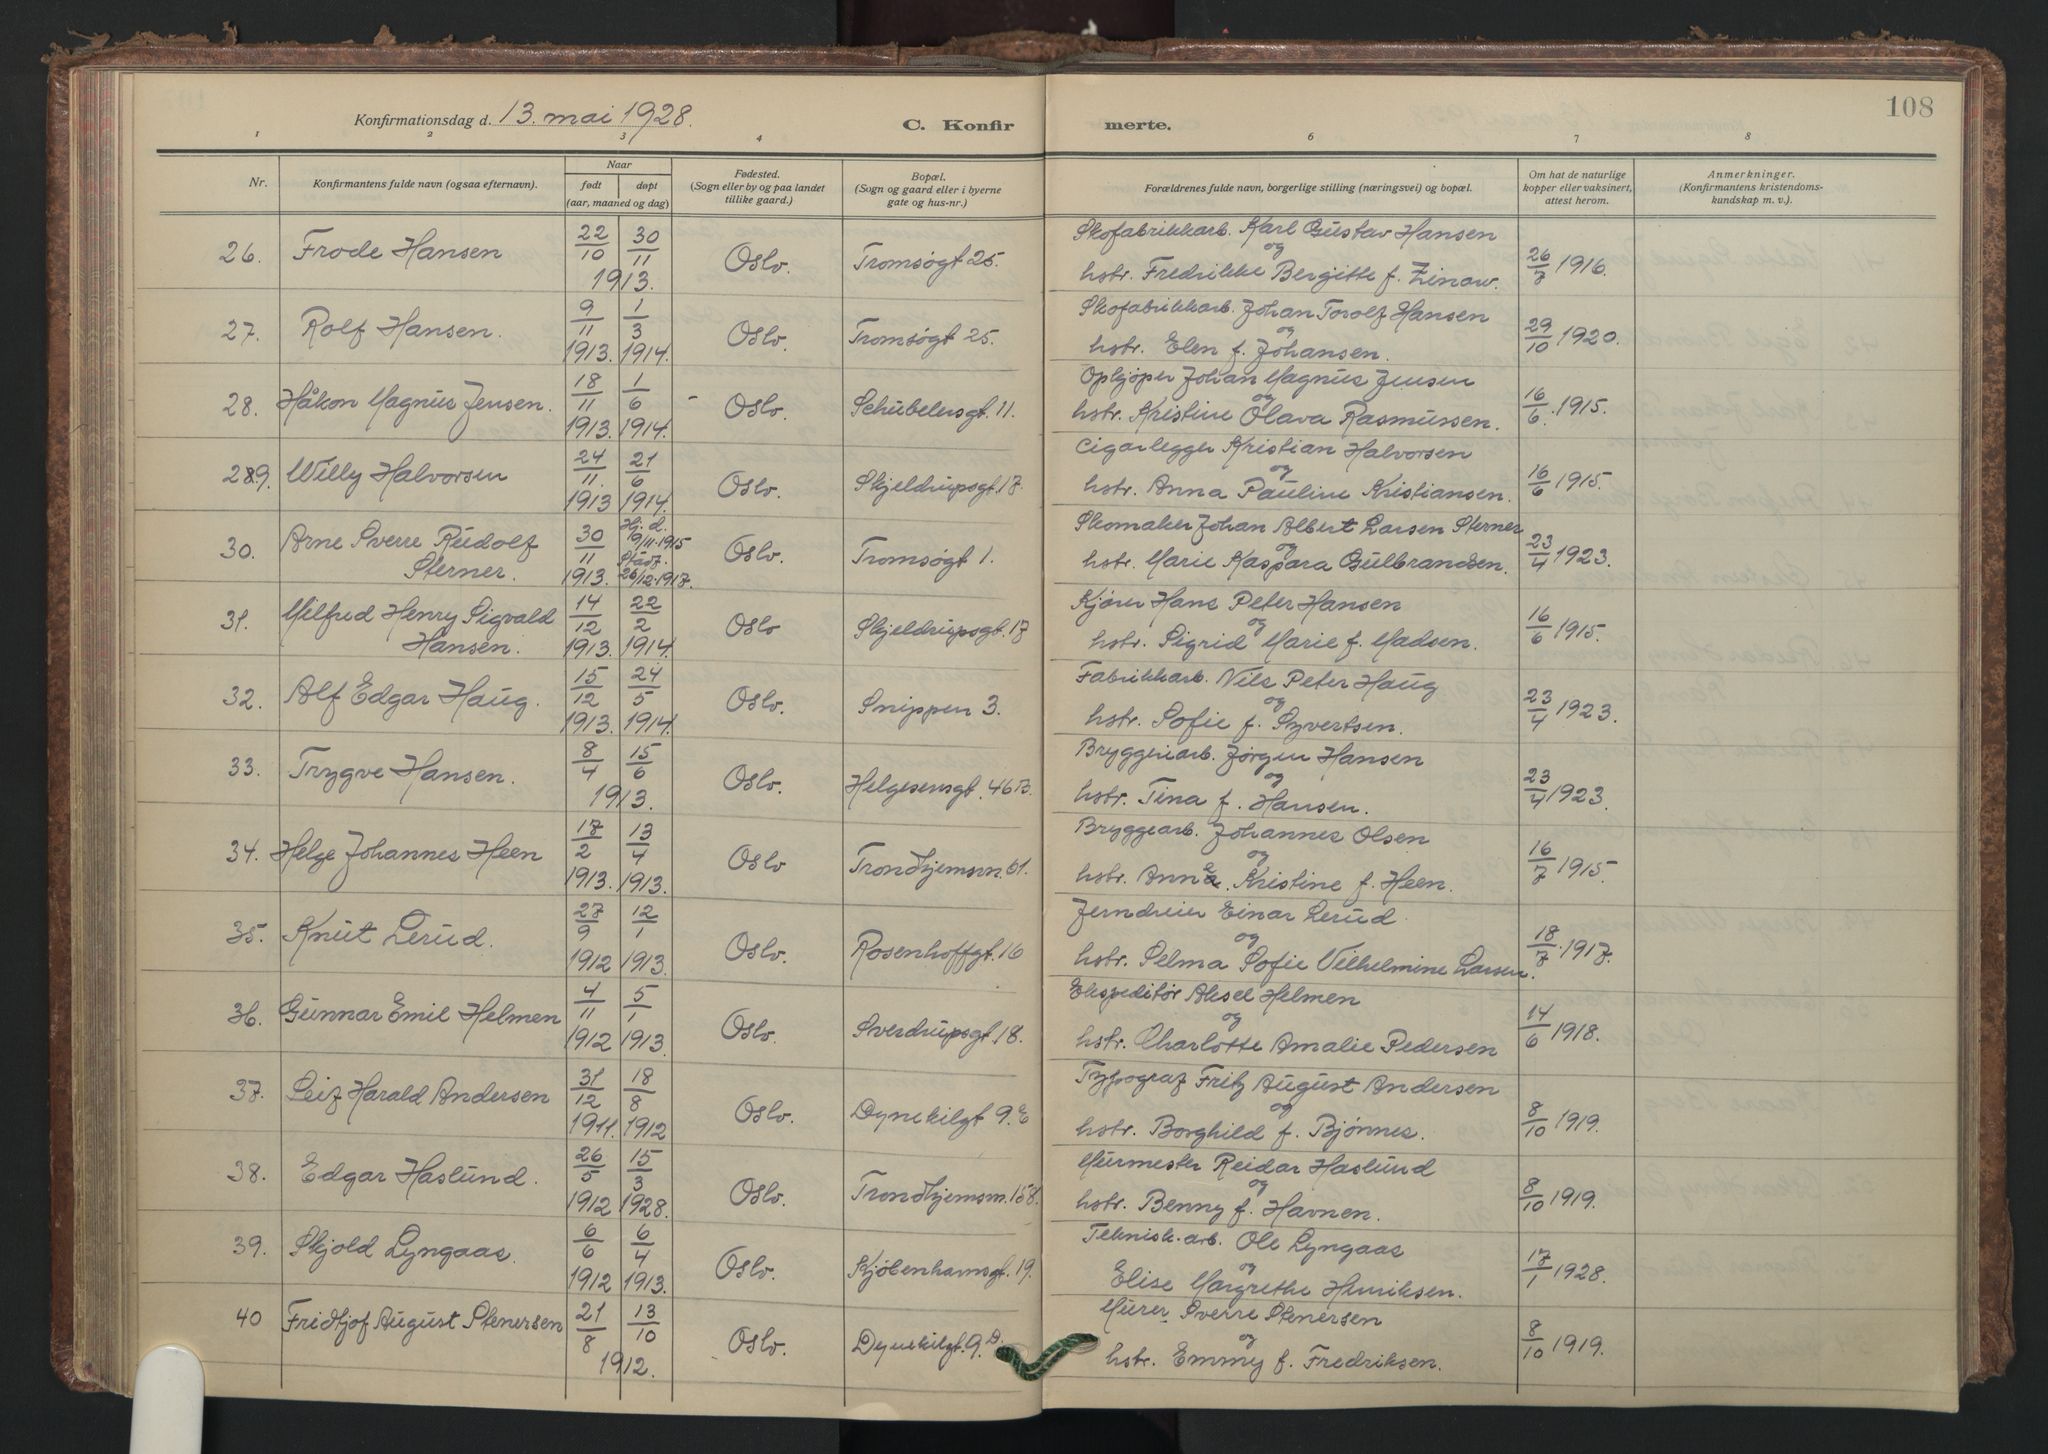 108
Konfirmationsdag d. 13. mai 1928.
C. Konfir merte.
1 2 3 4 6 7 8
Nr.
Konfirmantens fulde navn (ogsaa efternavn).
Naar
født døpt
(aar, maaned og dag)
Fødested.
(Sogn eller by og paa landet
tillike gaard.)
Bopæl.
(Sogn og gaard eller i byerne
gate og hus-nr.)
Forældrenes fulde navn, borgerlige stilling (næringsvei) og bopæl.
Om hat de naturlige
kopper eller vaksinert,
attest herom.
Anmerkninger.
(Konfirmantens kristendoms-
kundskap m. v.).
26. Frode Hansen 22/10 30/11 1913. Oslo. Tromsøgt 25. Skofabrikkarb. Karl Gustav Hansen
og
hstr. Fredrikke Bergitte f. Zinow. 26/7 1916.
27. Rolf Hansen. 9/11 1913. 1/3 1914. Oslo. Tromsøgt 25. Skofabrikkarb. Johan Torolf Hansen
og
hstr. Elen f. Johansen. 29/10 1920.
28. Håkon Magnus Jensen. 18/11 1913. 1/6 1914. - Oslo. Schübelersgt. 11. Opkjøper Johan Magnus Jensen
og
hstr. Kristine Olava Rasmussen. 16/6. 1915.
289. Willy Halvorsen 24/11. 1913 21/6 1914. Oslo. Skjeldrupsgt. 17. Cigarlegger Kristian Halvorsen
og
hstr. Anna Pauline Kristiansen. 16/6 1915.
30. Arne Sverre Rudolf
Sterner. 30/11 1913. Hj. d. 19/11-1915 Stadf. 26/12-1917. Oslo. Tromsøgt 1. Skomaker Johan Albert Larsen Sterner
og
hstr. Marie Kaspara Gulbrandsen. 23/4 1923.
31. Milfred Henry Sigvald
Hansen. 14/12 1913. 22/2 1914. Oslo Skjeldrupsgt. 17 Kjører Hans Peter Hansen
og
hstr. Sigrid Marie f. Madsen. 16/6 1915.
32. Alf Edgar Haug. 15/12 1913. 24/5 1914. Oslo. Snippen 3. Fabrikkarb. Nils Peter Haug
og
hstr. Sofie f. Syvertsen. 23/4 1923.
33. Trygve Hansen. 8/4 15/6 1913. Oslo. Helgesensgt. 46 B. Bryggeriarb. Jørgen Hansen
og
hstr. Tina f. Hansen. 23/4 1923.
34. Helge Johannes Heen 17/2 1913. 13/4 1913. Oslo Trondhjemsvn. 61. Bryggearb. Johannes Olsen
og
hstr. Anne Kristine f. Heen. 16/7 1915.
35. Knut Lerud. 27/9 1912 12/1 1913. Oslo. Rosenhoffgt. 16 Jerndreier Einar Lerud.
og
hstr. Selma Sofie Vilhelmine Larsen. 18/7. 1917.
36. Gunnar Emil Helmen 4/11 1912 5/1 1913. Oslo. Sverdrupsgt. 18. Ekspeditør Aksel Helmen
og
hstr. Charlotte Amalie Pedersen 14/6 1918.
37. Leif Harald Andersen 31/12 1911. 18/8 1912 Oslo. Dynekilgt 9. E Typograf Fritz August Andersen
og
hstr. Borghild f. Bjønnes. 8/10 1919.
38. Edgar Haslund. 26/5 1912 15/3 1928. Oslo. Trondhjemsvn. 158. Murmester Reidar Haslund
og
hstr. Benny f. Havnen. 8/10 1919.
39. Skjold Lyngaas. 6/6 1912 6/4 1913. Oslo. Kjøbenhavnsgt. 19. Teknisk. arb. Ole Lyngaas
og
Elise Margrethe Henriksen. 17/1 1928.
40 Fridtjof August Stenersen 21/8 13/10 1912. Oslo. Dynekilgt. 9. D. Murer Sverre Stenersen
og
hstr. Emmy f. Fredriksen. 8/10 1919.